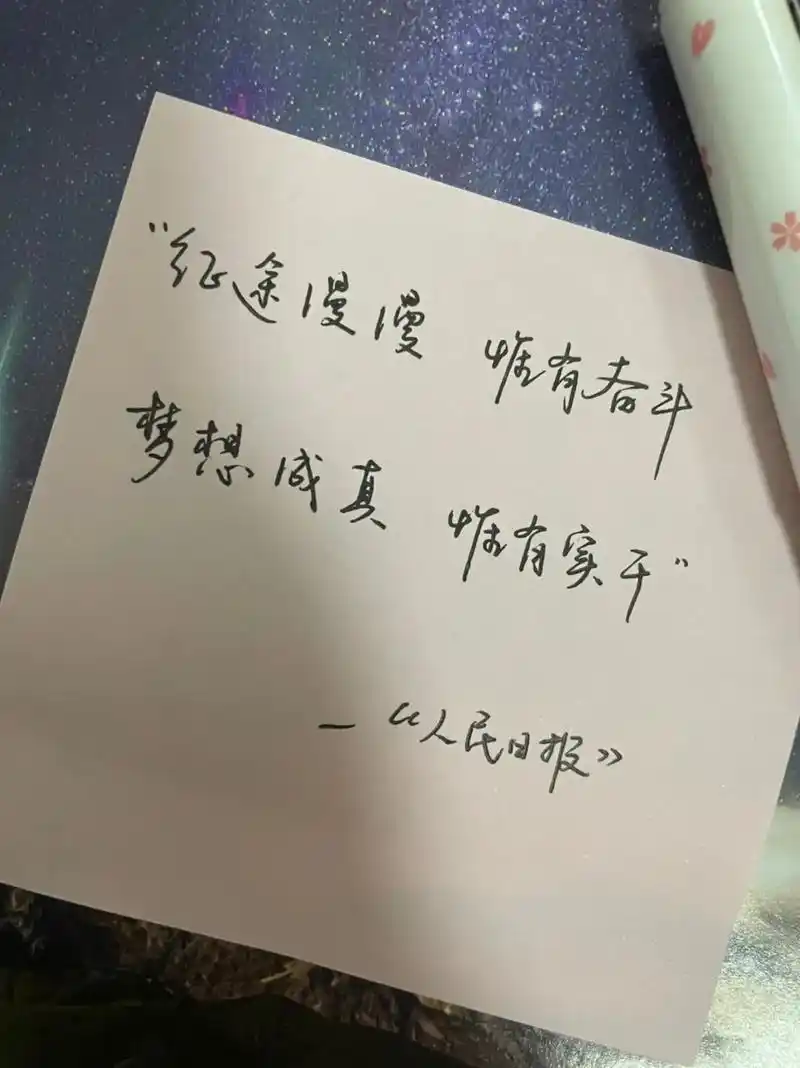 “征途漫漫 惟有奋斗
梦想成真 惟有实干”
—《人民日报》